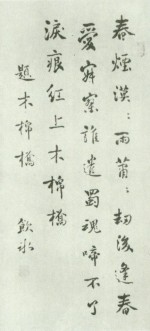 春煙漠〻雨蕭〻劫後逢春
愛寂寥誰遣蜀魂啼不了
淚痕紅上木棉橋
題木棉橋 飲冰